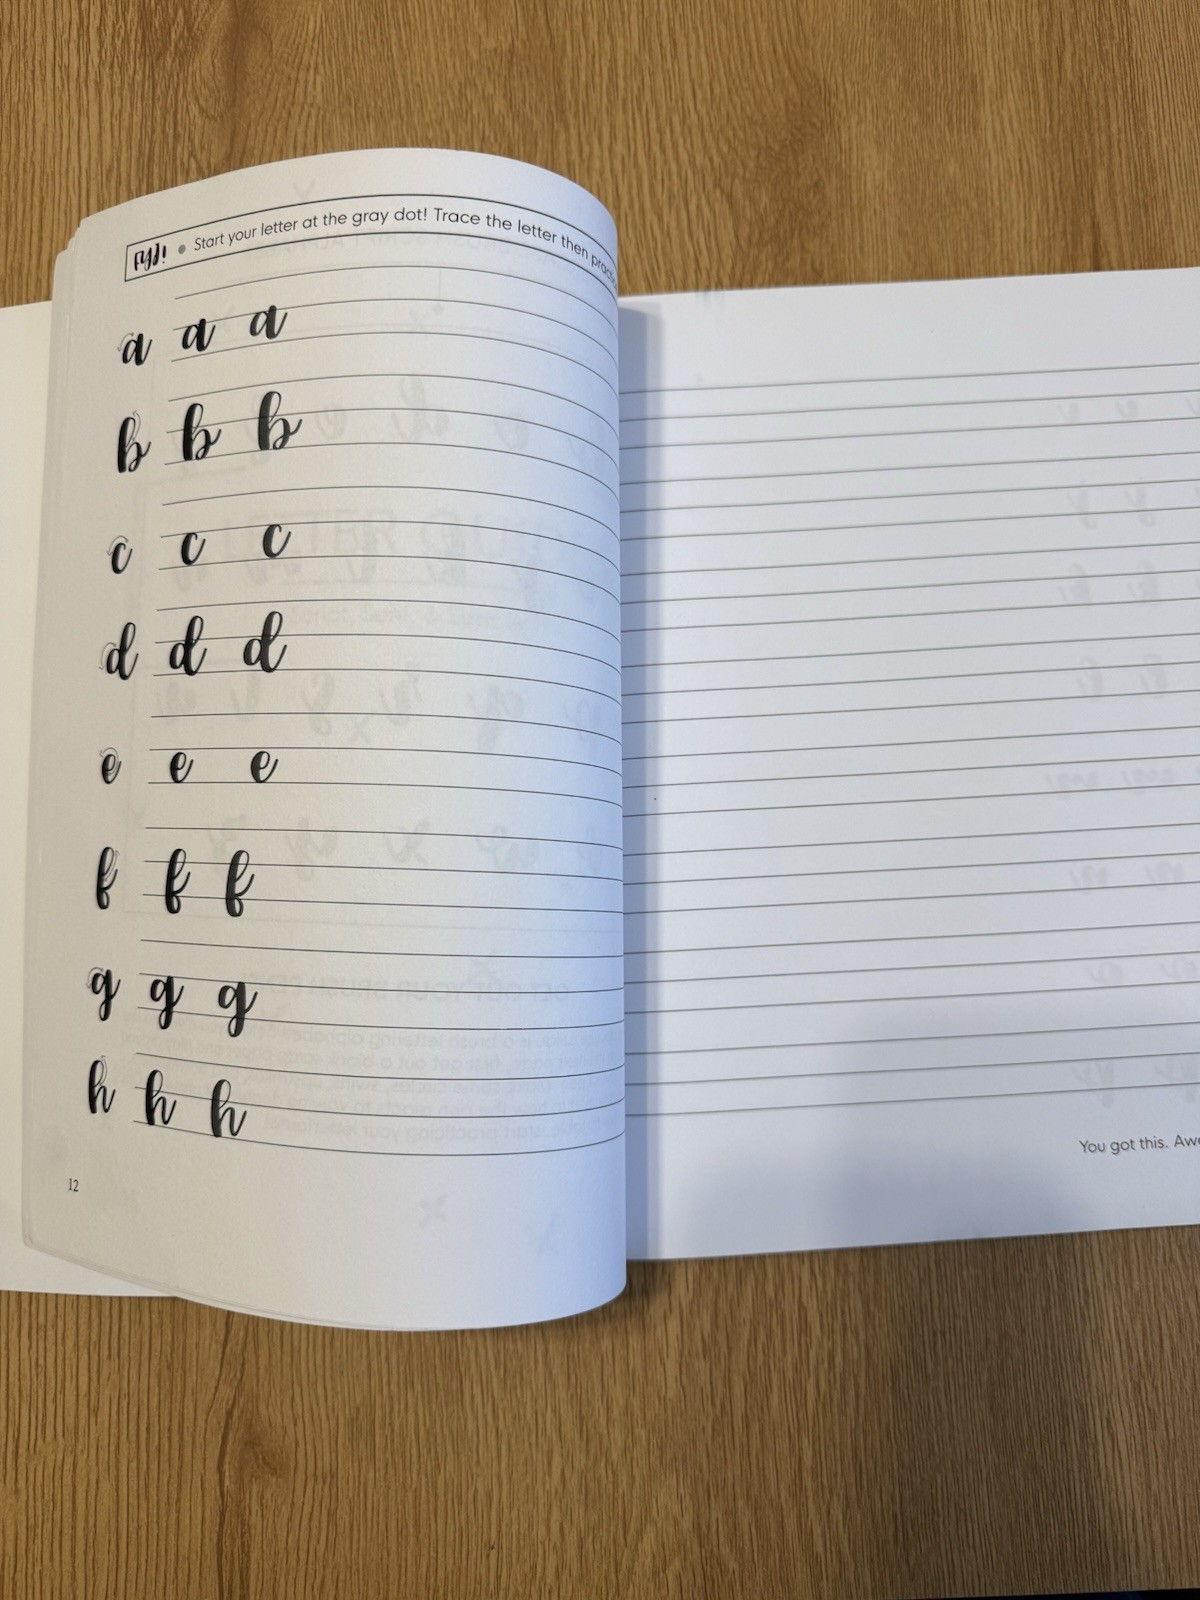 FYI! Start your letter at the gray dot! Trace the letter then
a a a
b b b
c c c
d d d
e e e
f f f
g g g
h h h
12
You got this.